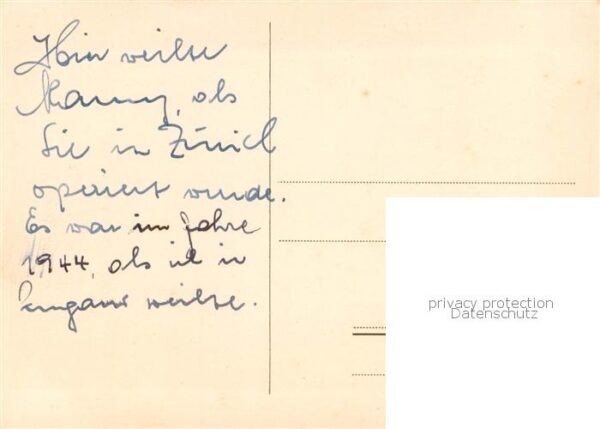 Hier weilte
Mammy, als
Sie in Zürich
operiert wurde.
Es war im Jahre
1944, als ich in
weilte.
privacy protection
Datenschutz